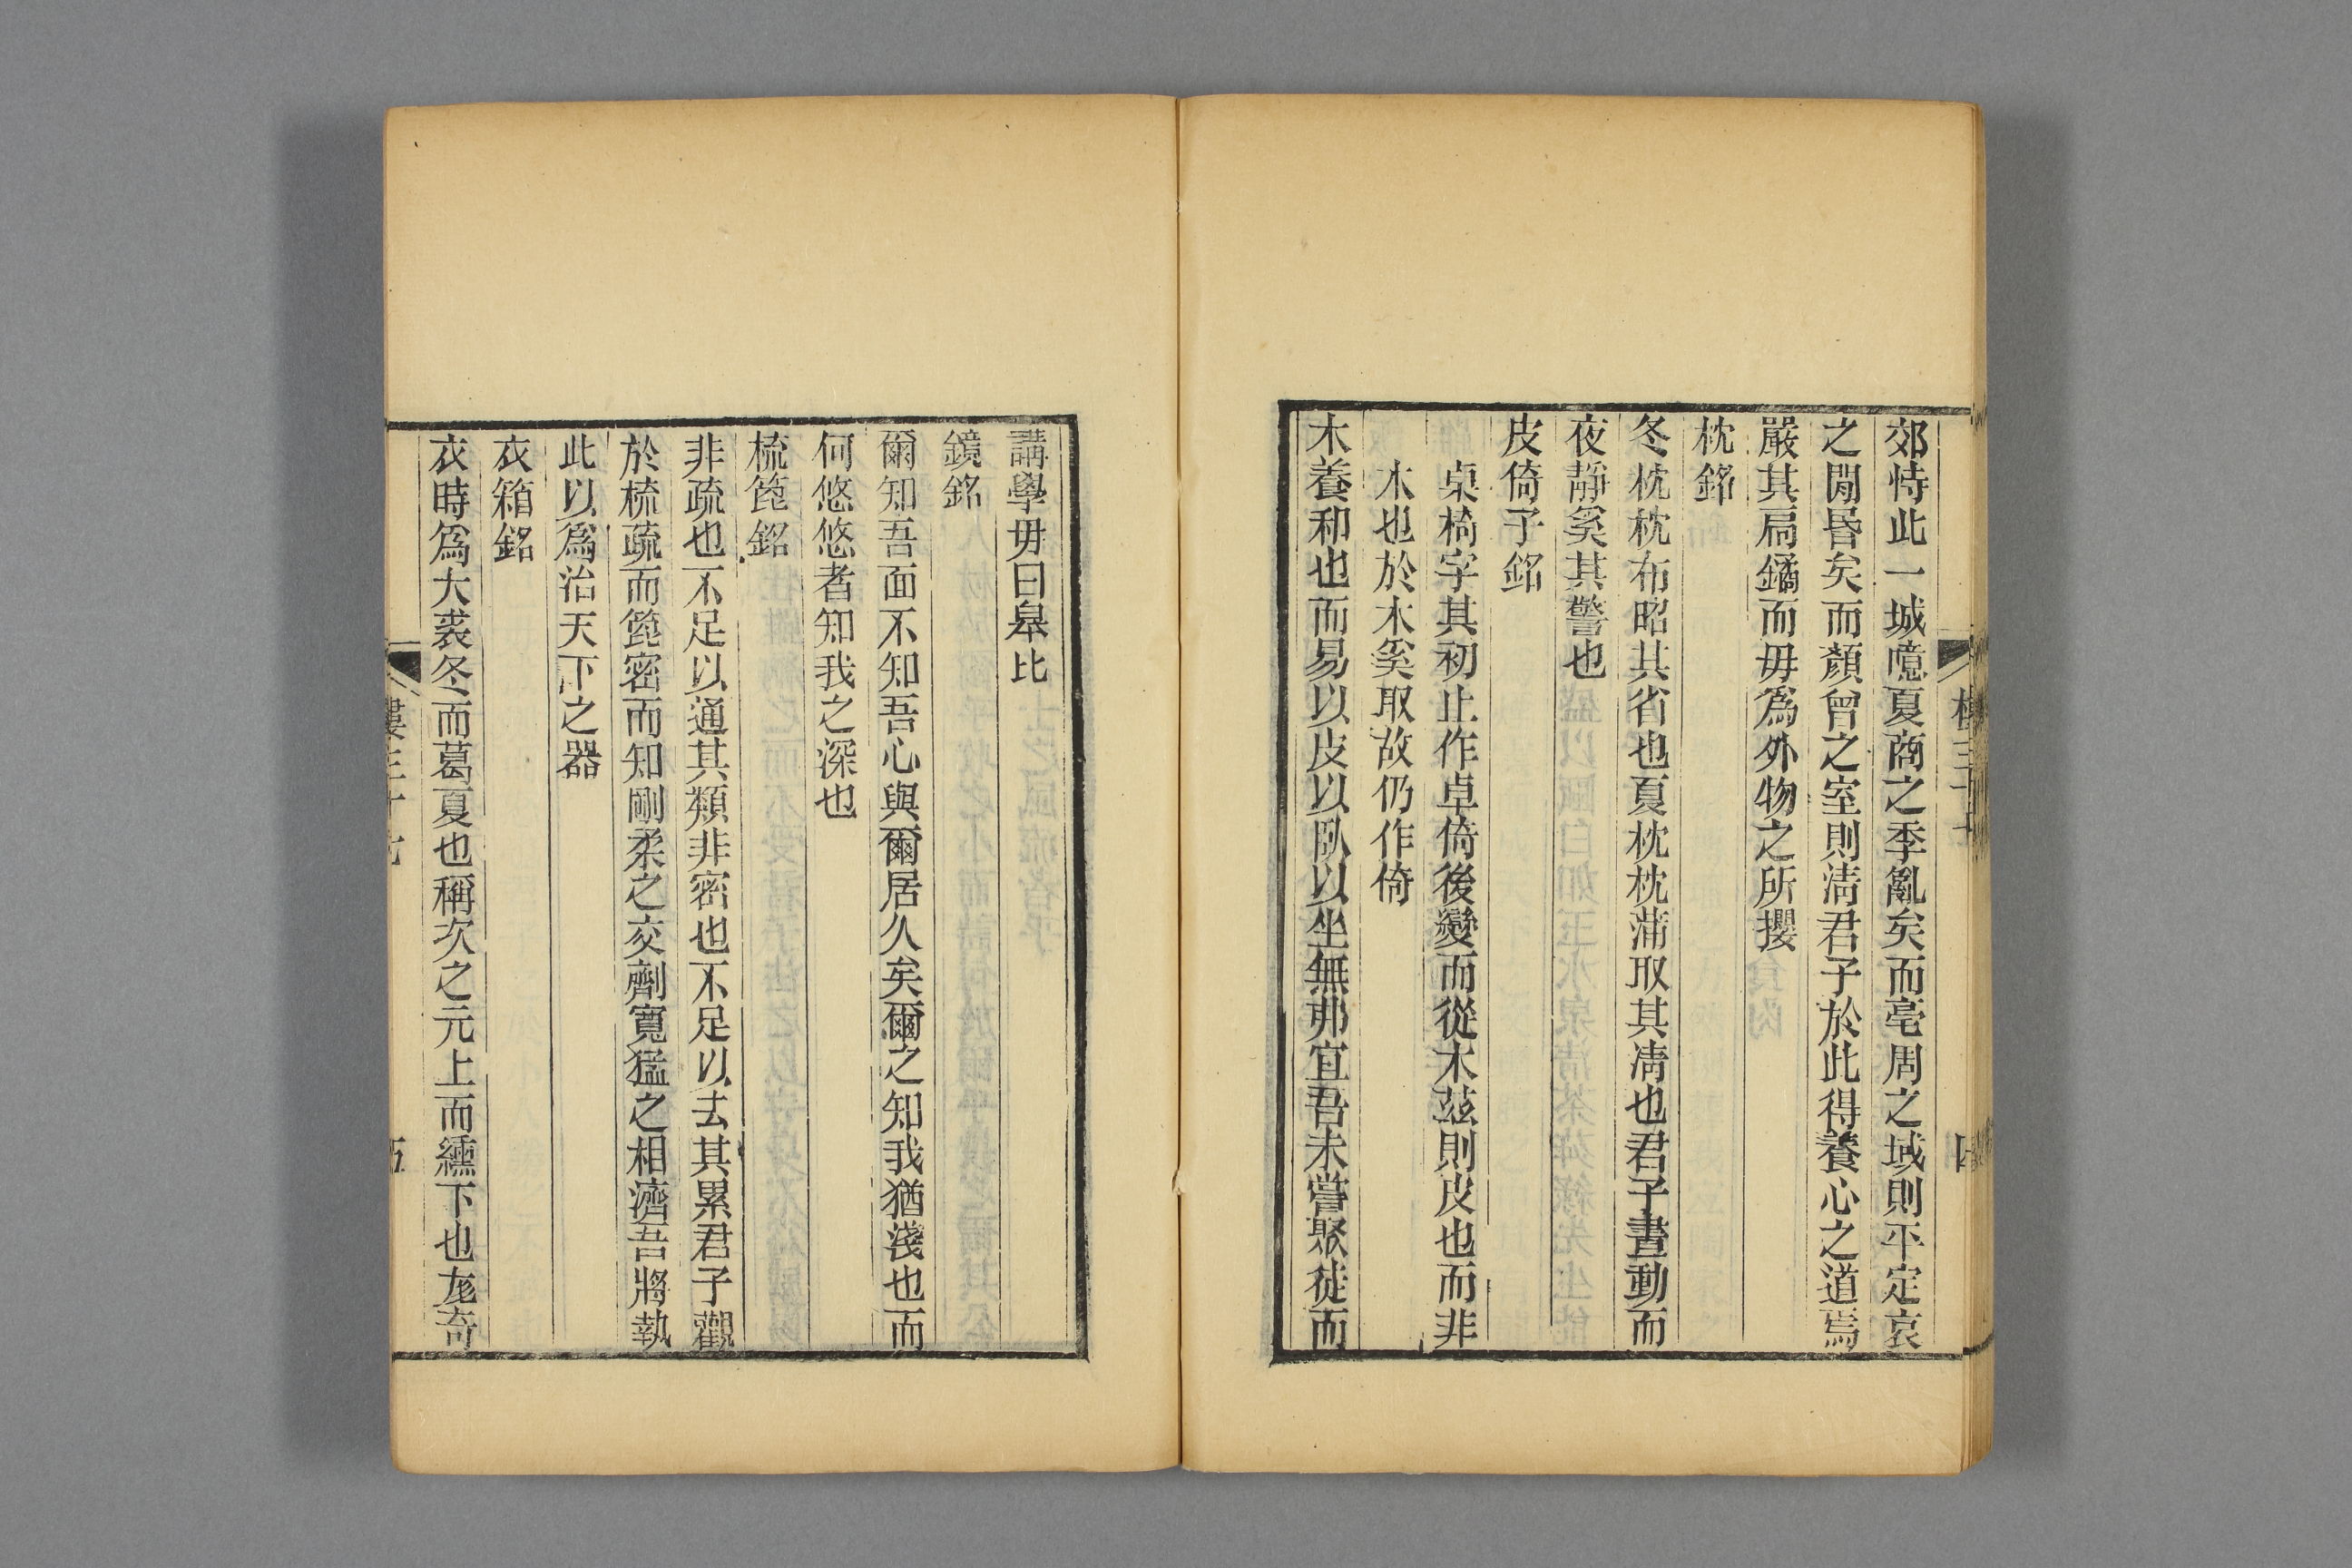 郊恃此一城噫夏商之季亂矣而亳周之域則平定哀
之閒昏矣而顏曾之室則淸君子於此得養心之道焉
嚴其扃鐍而毋爲外物之所攖
枕銘
冬枕枕布昭其省也夏枕枕蒲取其凊也君子晝動而
夜靜奚其警也
皮倚子銘
桌椅字其初止作卓倚後變而從木茲則皮也而非
木也於木奚取故仍作倚
木養和也而易以皮以臥以坐無弗宜吾未嘗聚徒而
講學毋曰皋比
鏡銘
爾知吾面不知吾心與爾居久矣爾之知我猶淺也而
何悠悠者知我之深也
梳篦銘
非疏也不足以通其類非密也不足以去其累君子觀
於梳疏而篦密而知剛柔之交劑寬猛之相濟吾將執
此以爲治天下之器
衣箱銘
衣時爲大裘冬而葛夏也稱次之元上而纁下也尨奇